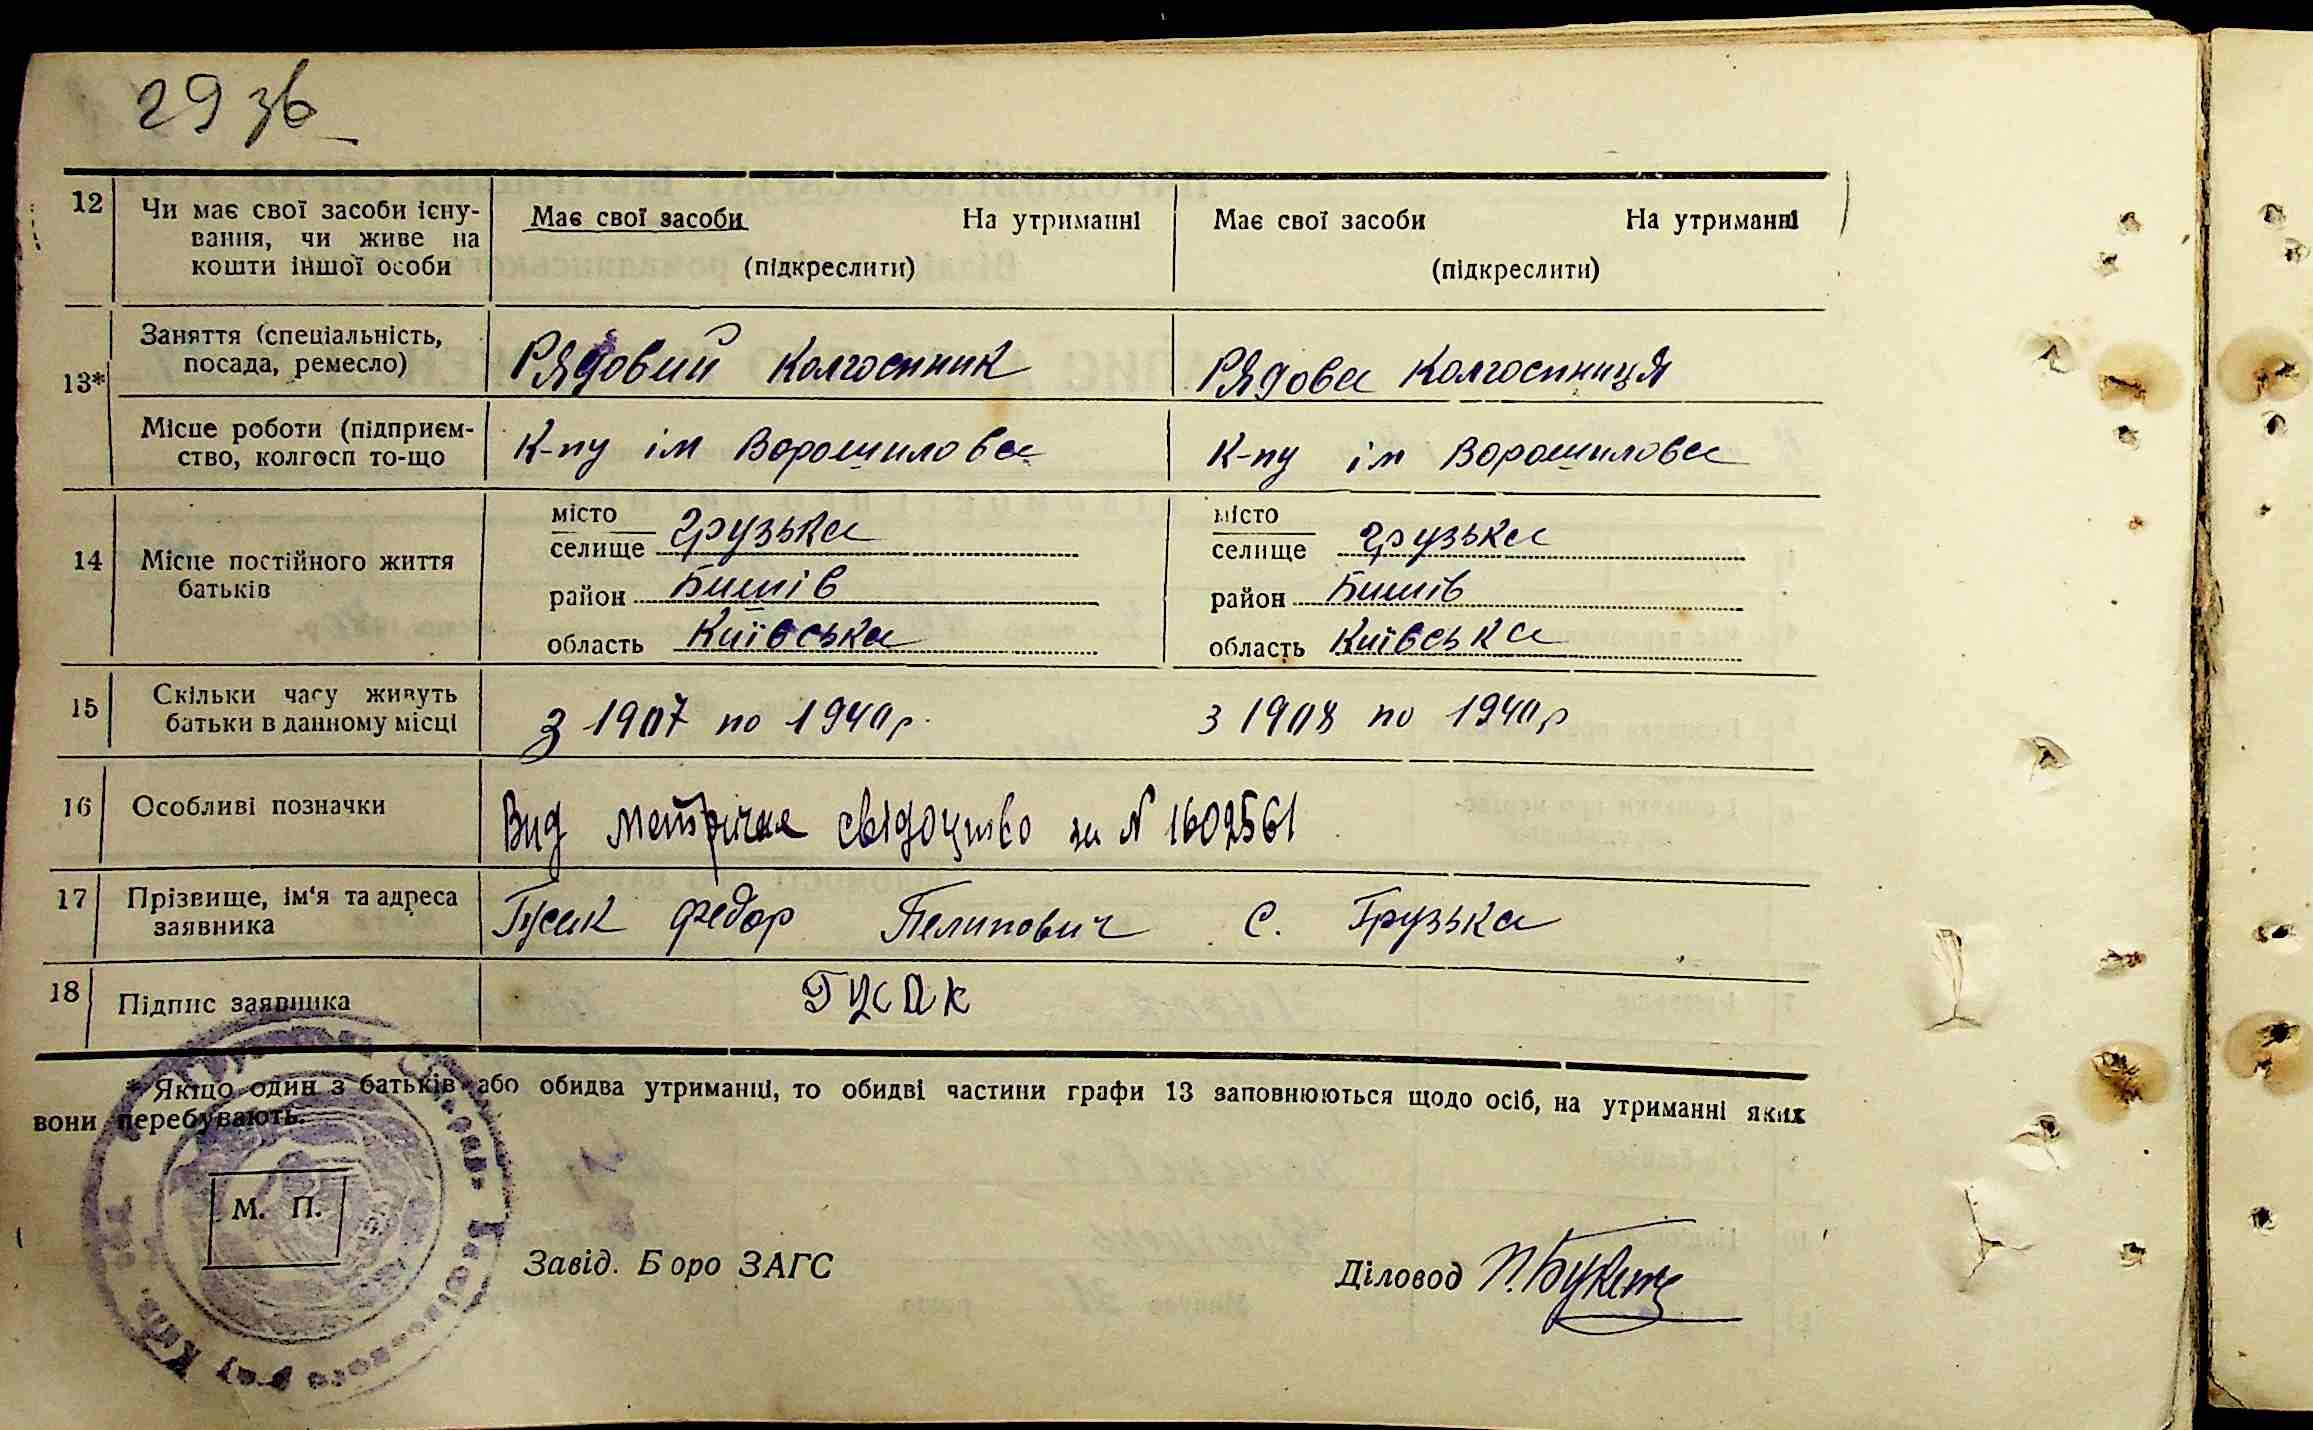 29 зв
12 Чи має свої засоби існу-
вання, чи живе на
кошти іншої особи
Має свої засоби На утриманні
(підкреслити)
Має свої засоби На утриманні
(підкреслити)
13* Заняття (спеціальність,
посада, ремесло)
Рядовий Колгоспник
Рядова Колгоспниця
Місце роботи (підприєм-
ство, колгосп то-що
К-пу ім Ворошилова
К-пу ім Ворошилова
14 Місце постійного життя
батьків
місто
селище Грузька
район Бишів
область Київська
місто
селище Грузька
район Бишів
область Київська
15 Скільки часу живуть
батьки в данному місці
З 1907 по 1940 р.
З 1908 по 1940 р
16 Особливі позначки
Вид метричне свідоцтво за № 1602561
17 Прізвище, ім'я та адреса
заявника
Гусак Федор Пелипович с. Грузька
18 Підпис заявника
Гусак
* Якщо один з батьків або обидва утриманці, то обидві частини графи 13 заповнюються щодо осіб, на утриманні яких
вони перебувають.
М. П.
Завід. Бюро ЗАГС
Діловод